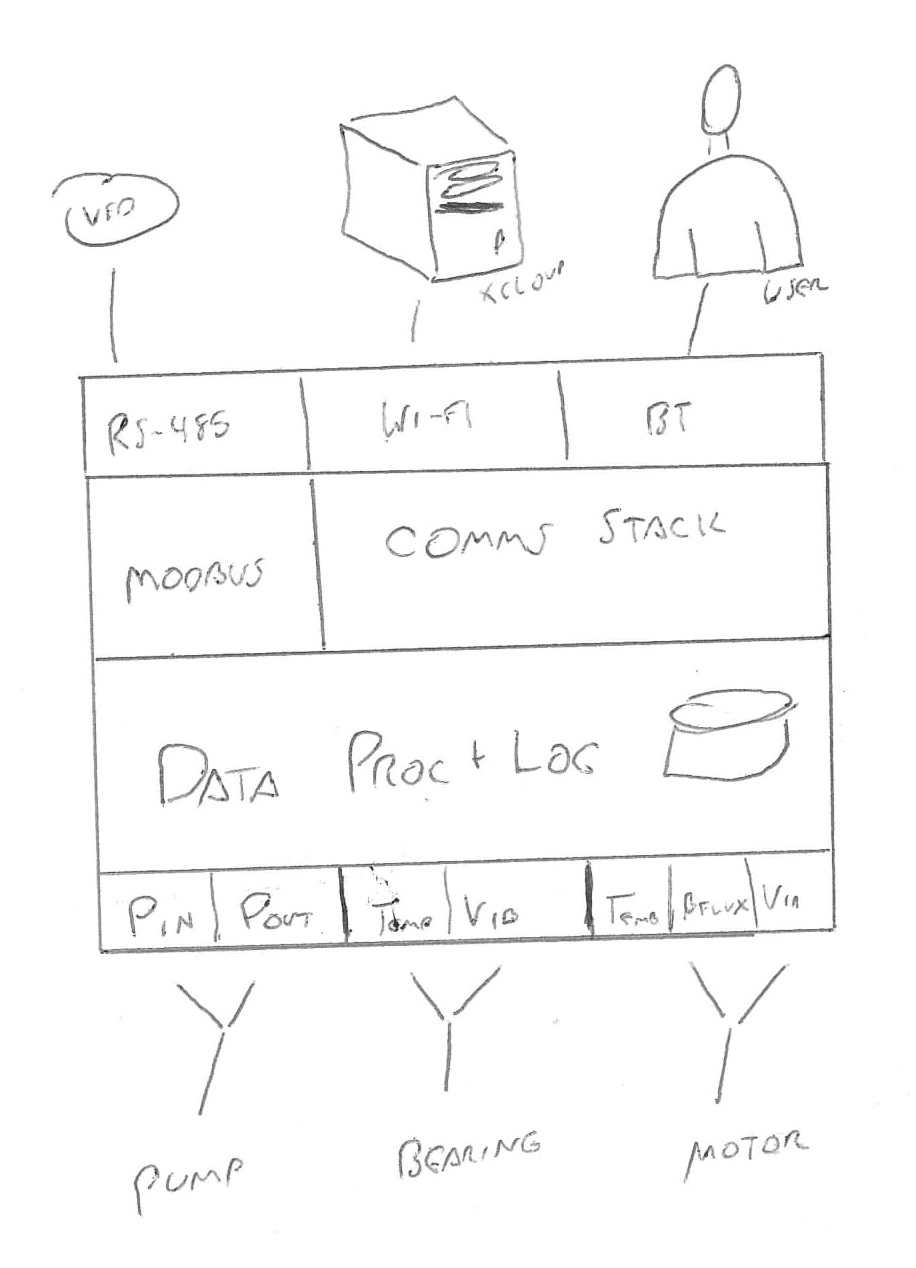 VFD
XCLOUD
USER
RS-485 WI-FI BT
MODBUS COMMS STACK
DATA PROC + LOG
PIN POUT TEMP VIB TEMP BFLUX VIB
PUMP BEARING MOTOR